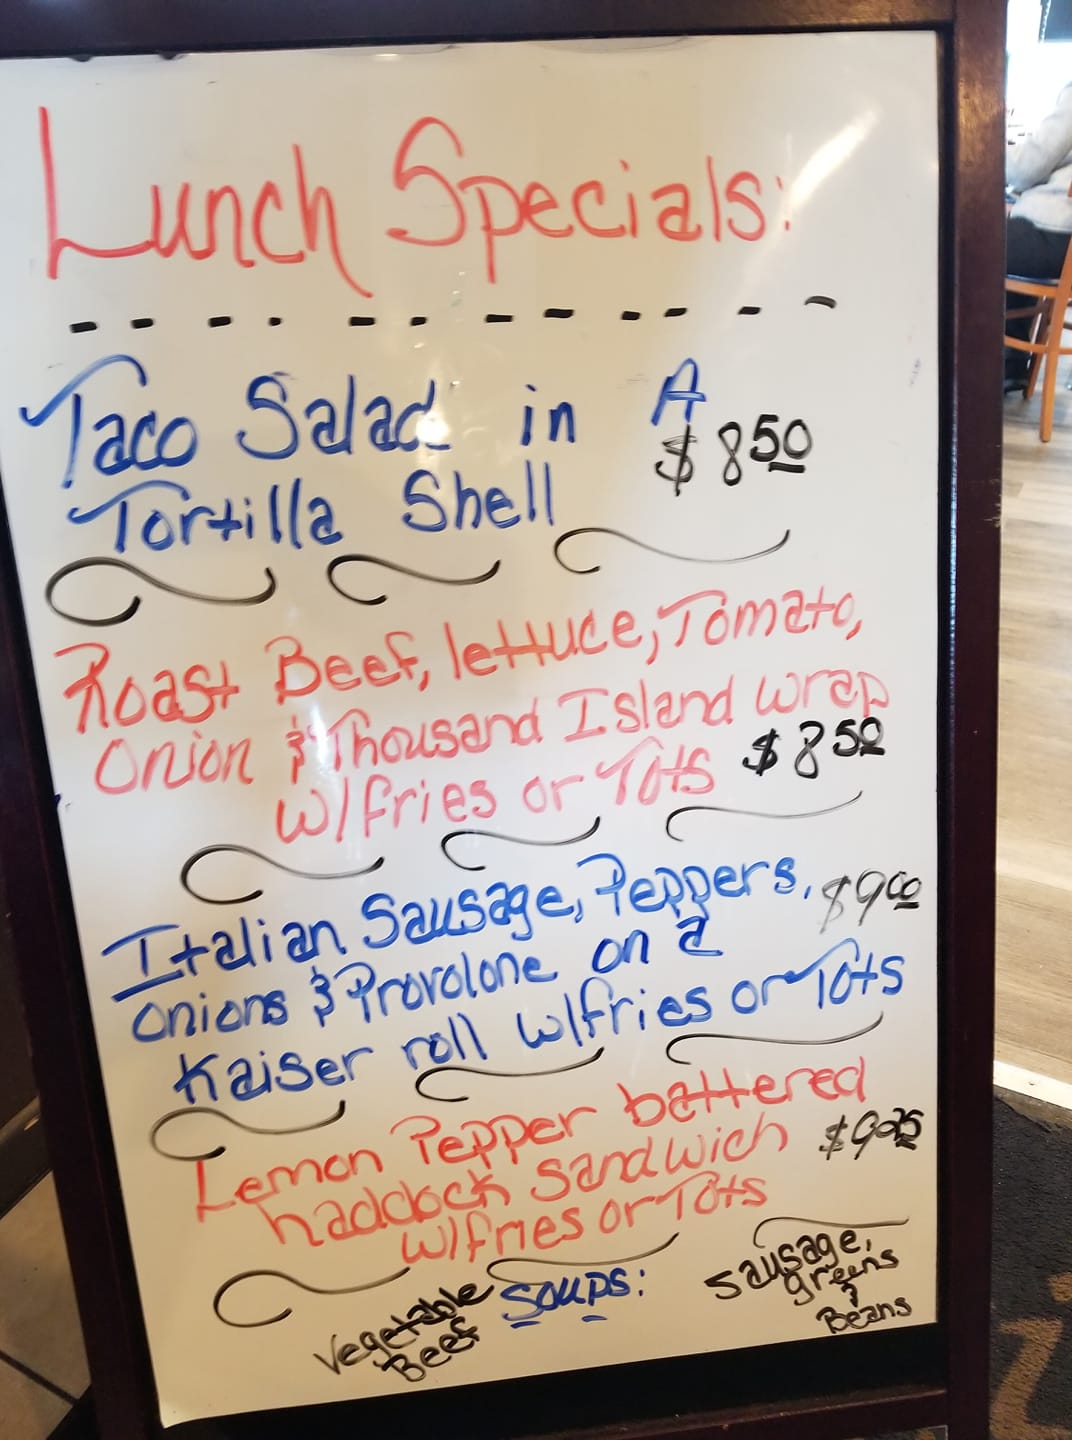 Lunch Specials:
Taco Salad in A
Tortilla Shell $8.50
Roast Beef, lettuce, Tomato,
Onion & Thousand Island wrap
w/fries or Tots $8.50
Italian Sausage, Peppers, $9.00
onions & Provolone on a
Kaiser roll w/fries or Tots
Lemon Pepper battered
haddock sandwich $9.25
w/fries or Tots
Soups:
Vegetable
Beef
Sausage,
greens
&
Beans